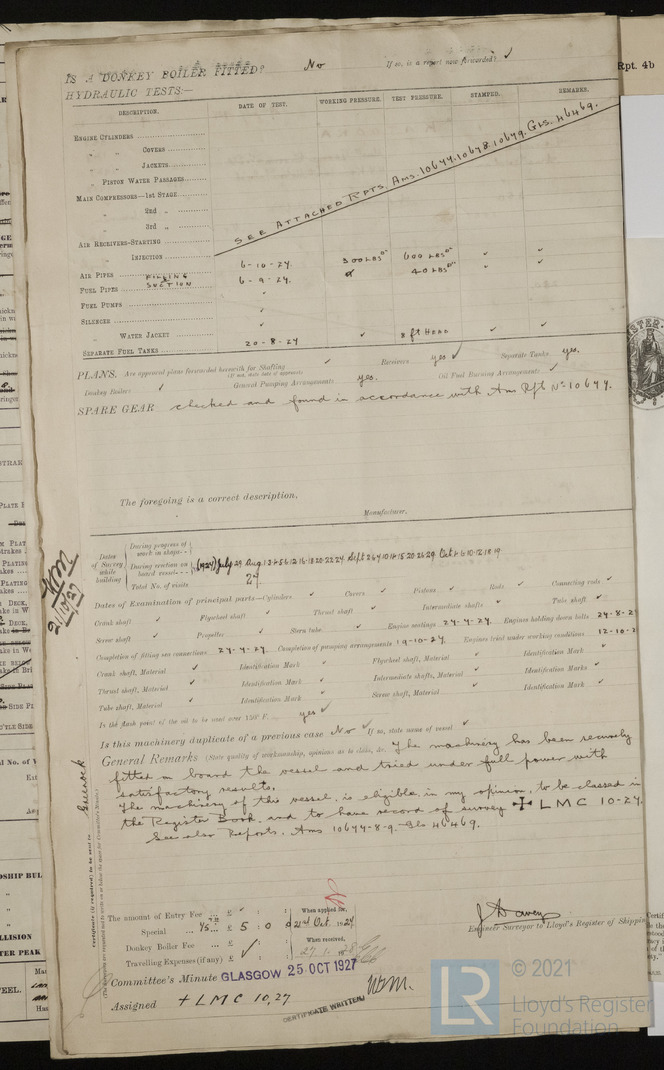 Rpt. 4b
IS A DONKEY BOILER FITTED? No If so, is a report now forwarded? ✓
HYDRAULIC TESTS:—
DESCRIPTION. DATE OF TEST. WORKING PRESSURE. TEST PRESSURE. STAMPED. REMARKS.
ENGINE CYLINDERS
" " COVERS
" " JACKETS
" PISTON WATER PASSAGES
MAIN COMPRESSORS—1st STAGE
" 2nd "
" 3rd "
SEE ATTACHED RPTS. Ams. 10677.10678.10679. Gls. 46469.
AIR RECEIVERS—STARTING
" INJECTION
AIR PIPES 6-10-27. 300 LBS 600 LBS ✓ ✓
FUEL PIPES FILLING & SUCTION 6-9-27. 40 LBS ✓ ✓
FUEL PUMPS
SILENCER ✓
" WATER JACKET ✓
SEPARATE FUEL TANKS 20-8-27 ✓ 8 ft HEAD ✓ ✓
PLANS. Are approved plans forwarded herewith for Shafting ✓ Receivers yes ✓ Separate Tanks yes.
(If not, state date of approval)
Donkey Boilers ✓ General Pumping Arrangements yes. Oil Fuel Burning Arrangements ✓
SPARE GEAR checked and found in accordance with Ams Rpt No 10679.
The foregoing is a correct description,
Manufacturer.
Dates of Survey while building
During progress of work in shops - -
During erection on board vessel - - (1927) July 29 Aug
Total No. of visits 27.
Dates of Examination of principal parts—Cylinders ✓ Covers ✓ Pistons ✓ Rods ✓ Connecting rods ✓
Crank shaft ✓ Flywheel shaft ✓ Thrust shaft ✓ Intermediate shafts ✓ Tube shaft ✓
Screw shaft ✓ Propeller ✓ Stern tube ✓ Engine seatings 27-7-27. Engines holding down bolts 27-8-2
Completion of fitting sea connections 27-7-27. Completion of pumping arrangements 19-10-27. Engines tried under working conditions 12-10-2
Crank shaft, Material ✓ Identification Mark ✓ Flywheel shaft, Material ✓ Identification Mark ✓
Thrust shaft, Material ✓ Identification Mark ✓ Intermediate shafts, Material ✓ Identification Marks ✓
Tube shaft, Material ✓ Identification Mark ✓ Screw shaft, Material ✓ Identification Mark ✓
Is the flash point of the oil to be used over 150° F. yes ✓
Is this machinery duplicate of a previous case No ✓ If so, state name of vessel ✓
General Remarks (State quality of workmanship, opinions as to class, &c. The machinery has been securely
fitted on board the vessel and tried under full power with
satisfactory results.
The machinery of this vessel, is eligible, in my opinion, to be classed in
the Register Book, and to have record of survey + LMC 10-27.
See also Reports. Ams 10677-8-9. Gls 46469.
WM
21/10/27
Greenock
Certificate (if required) to be sent to
The amount of Entry Fee ... £ ✓ : : When applied for,
Special ... £ 5 : 0 : 0 21st Oct. 1927
Donkey Boiler Fee ... £ ✓ : : When received,
Travelling Expenses (if any) £ : :
J Davey
Engineer Surveyor to Lloyd's Register of Shippin
Committee's Minute GLASGOW 25 OCT 1927
Assigned + LMC 10,27
CERTIFICATE WRITTEN
LR
© 2021
Lloyd's Register
Foundation